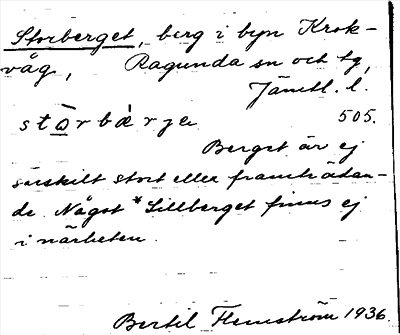 Storberget, berg i byn Krok-
våg, Ragunda sn och tg,
Jämtl. l.
stὰrbærje 505.
Berget är ej
särskilt stort eller framträdan-
de. Något *Lillberget finns ej
i närheten.
Bertil Flemström 1936.